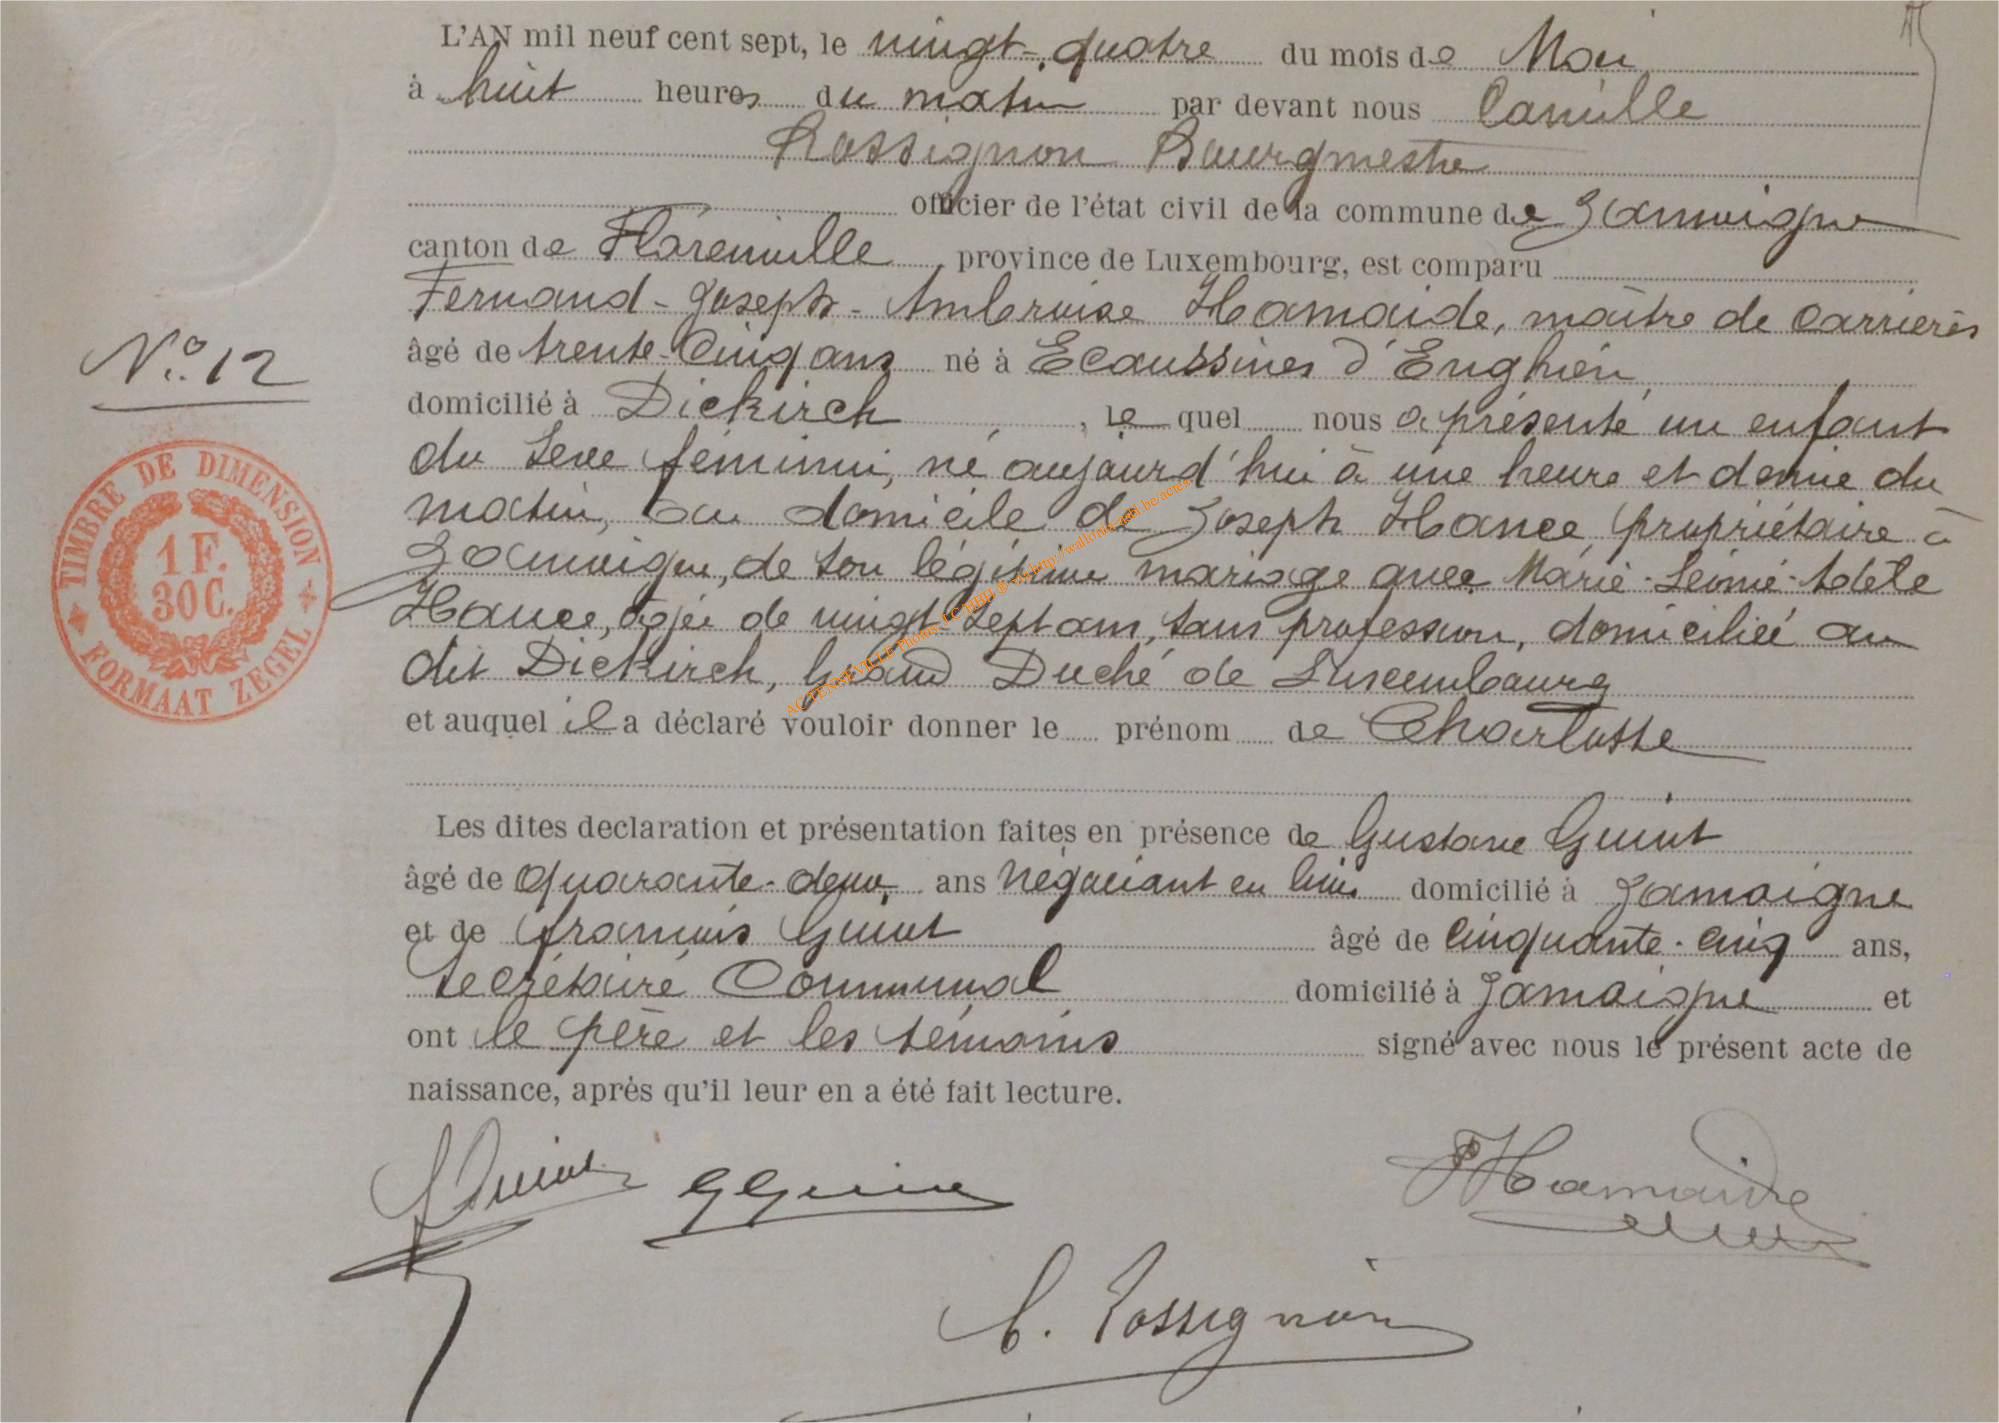 L'AN mil neuf cent sept, le vingt-quatre du mois de Mai
à huit heures du matin par devant nous Camille
Rossignon Bourgmestre
officier de l'état civil de la commune de Jamoigne
canton de Florenville province de Luxembourg, est comparu
Fernand-Joseph-Ambroise Hamaide, maître de carrières
âgé de trente-cinq ans né à Ecaussines d'Enghien,
domicilié à Dickirch, le quel nous a présenté un enfant
du sexe féminin, né aujourd'hui à une heure et demie du
matin, au domicile de Joseph Hance propriétaire à
Jamoigne, de son légitime mariage avec Marie-Léonie-Adèle
Hance, âgée de vingt sept ans, sans profession, domiciliée au
dit Dickirch, Grand Duché de Luxembourg
et auquel il a déclaré vouloir donner le prénom de Charlotte
Les dites declaration et présentation faites en présence de Gustave Guint
âgé de quarante-deux ans négociant en vins domicilié à Jamoigne
et de François Guint âgé de cinquante-cinq ans,
Secrétaire Communal domicilié à Jamoigne et
ont le père et les témoins signé avec nous le présent acte de
naissance, après qu'il leur en a été fait lecture.
N° 12
TIMBRE DE DIMENSION
1 F.
30 C.
FORMAAT ZEGEL
FHamaide
C. Rossignon